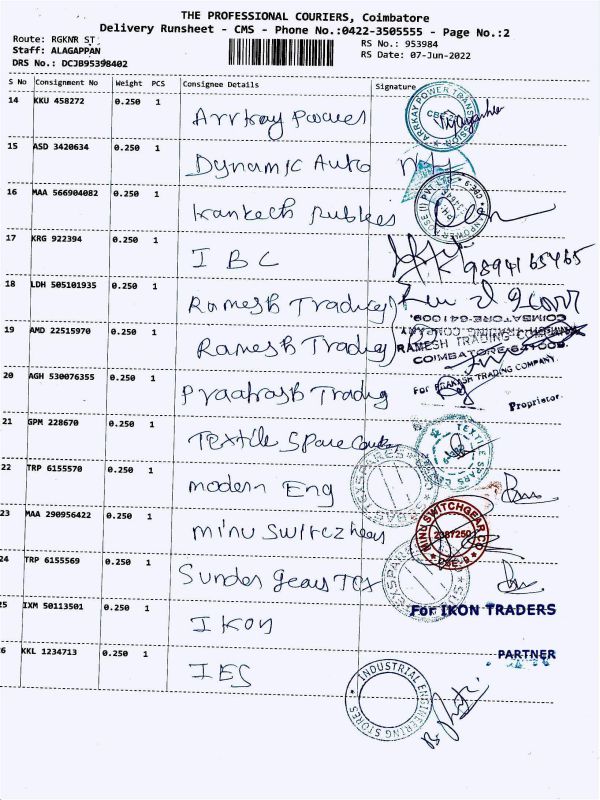 THE PROFESSIONAL COURIERS, Coimbatore
Delivery Runsheet - CMS - Phone No.:0422-3505555 - Page No.:2
Route: RGKNR ST
Staff: ALAGAPPAN
DRS No.: DCJB95398402
RS No.: 953984
RS Date: 07-Jun-2022
S No Consignment No Weight PCS Consignee Details Signature
14 KKU 458272 0.250 1 Arrkay Powers
ARRKAY POWER TRANS
15 ASD 3420634 0.250 1 Dynamic Auto
16 MAA 566904082 0.250 1
17 KRG 922394 0.250 1 I B C
9894165465
18 LDH 505101935 0.250 1 Ramesh Trading
COIMBATORE-641009.
19 AMD 22515970 0.250 1 Ramesh Trading
RAMESH TRADING COMPANY
COIMBATORE-641009.
20 AGH 530076355 0.250 1 Praakash Trading
For PRAKASH TRADING COMPANY.
Proprietor.
21 GPM 228670 0.250 1 Textile Spare
TEXTILE SPARS CENTRE
22 TRP 6155570 0.250 1 modern Eng
23 MAA 290956422 0.250 1 minu Switzhgears
MINU SWITCHGEAR CO
2387250
CBE-9
24 TRP 6155569 0.250 1 Sunder gears
25 IXM 50113501 0.250 1 IKON
For IKON TRADERS
PARTNER
26 KKL 1234713 0.250 1 IES
INDUSTRIAL ENGINEERING STORES